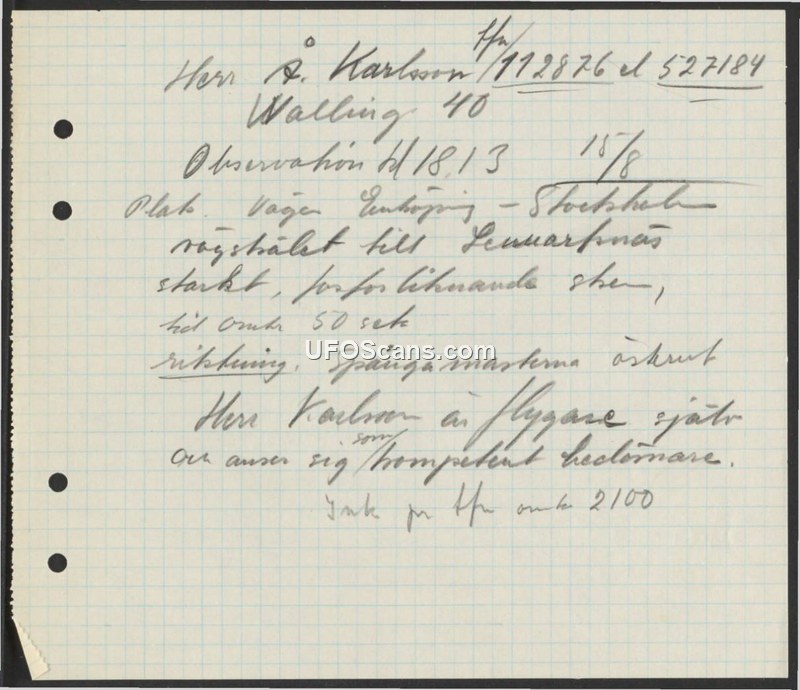 tfn
Herr Å. Karlsson / 112876 el 527184
Walling 40
Observation kl 18.13 15/8
Plats. Vägen Enköping – Stockholm
vägskälet till Lennartsnäs
starkt, fosforliknande sken,
tid omkr 50 sek
riktning. Spångamasterna österut
UFOScans.com
Herr Karlsson är flygare själv
och anser sig som kompetent bedömare.
Ink pr tfn omkr 2100